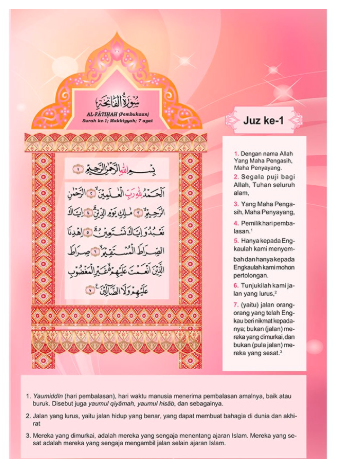 سُورَةُ الْفَاتِحَةِ
AL-FĀTIḤAH (Pembukaan)
Surah ke 1; Makkiyyah; 7 ayat
بِسْمِ اللّٰهِ الرَّحْمٰنِ الرَّحِيْمِ ١
اَلْحَمْدُ لِلّٰهِ رَبِّ الْعٰلَمِيْنَ ٢ الرَّحْمٰنِ
الرَّحِيْمِ ٣ مٰلِكِ يَوْمِ الدِّيْنِ ٤ اِيَّاكَ
نَعْبُدُ وَاِيَّاكَ نَسْتَعِيْنُ ٥ اِهْدِنَا
الصِّرَاطَ الْمُسْتَقِيْمَ ٦ صِرَاطَ
الَّذِيْنَ اَنْعَمْتَ عَلَيْهِمْ غَيْرِ الْمَغْضُوْبِ
عَلَيْهِمْ وَلَا الضَّاۤلِّيْنَ ٧
Juz ke-1
1. Dengan nama Allah
Yang Maha Pengasih,
Maha Penyayang.
2. Segala puji bagi
Allah, Tuhan seluruh
alam,
3. Yang Maha Penga-
sih, Maha Penyayang,
4. Pemilik hari pemba-
lasan.¹
5. Hanya kepada Eng-
kaulah kami menyem-
bah dan hanya kepada
Engkaulah kami mohon
pertolongan.
6. Tunjukilah kami ja-
lan yang lurus,²
7. (yaitu) jalan orang-
orang yang telah Eng-
kau beri nikmat kepada-
nya; bukan (jalan) me-
reka yang dimurkai, dan
bukan (pula jalan) me-
reka yang sesat.³
1. Yaumiddīn (hari pembalasan), hari waktu manusia menerima pembalasan amalnya, baik atau
buruk. Disebut juga yaumul qiyāmah, yaumul hisāb, dan sebagainya.
2. Jalan yang lurus, yaitu jalan hidup yang benar, yang dapat membuat bahagia di dunia dan akhi-
rat
3. Mereka yang dimurkai, adalah mereka yang sengaja menentang ajaran Islam. Mereka yang se-
sat adalah mereka yang sengaja mengambil jalan selain ajaran Islam.